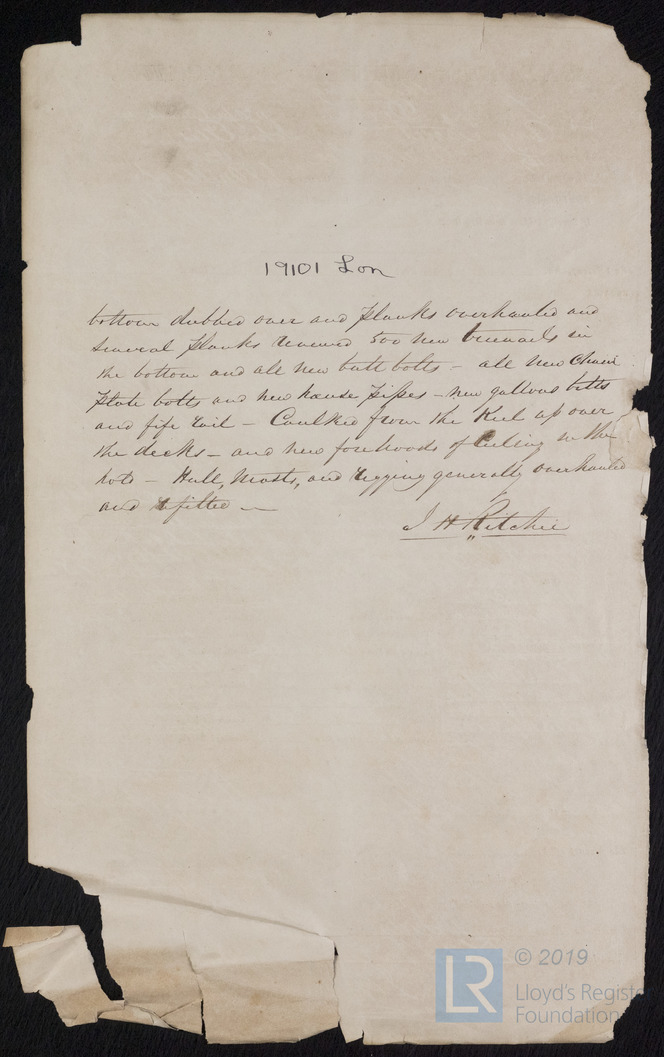 19101 Lon
bottom dubbed over and planks overhauled and
several planks renewed 500 new treenails in
the bottom and all new butt bolts - all new chain
plate bolts and new hawse pipes - new gallows bitts
and fife rail - Caulked from the Keel up over
the decks - and new forehoods of Ceiling in the
hold - Hull, Masts, and rigging generally overhauled
and refitted -
J H Ritchie
© 2019
LR
Lloyd's Register
Foundation